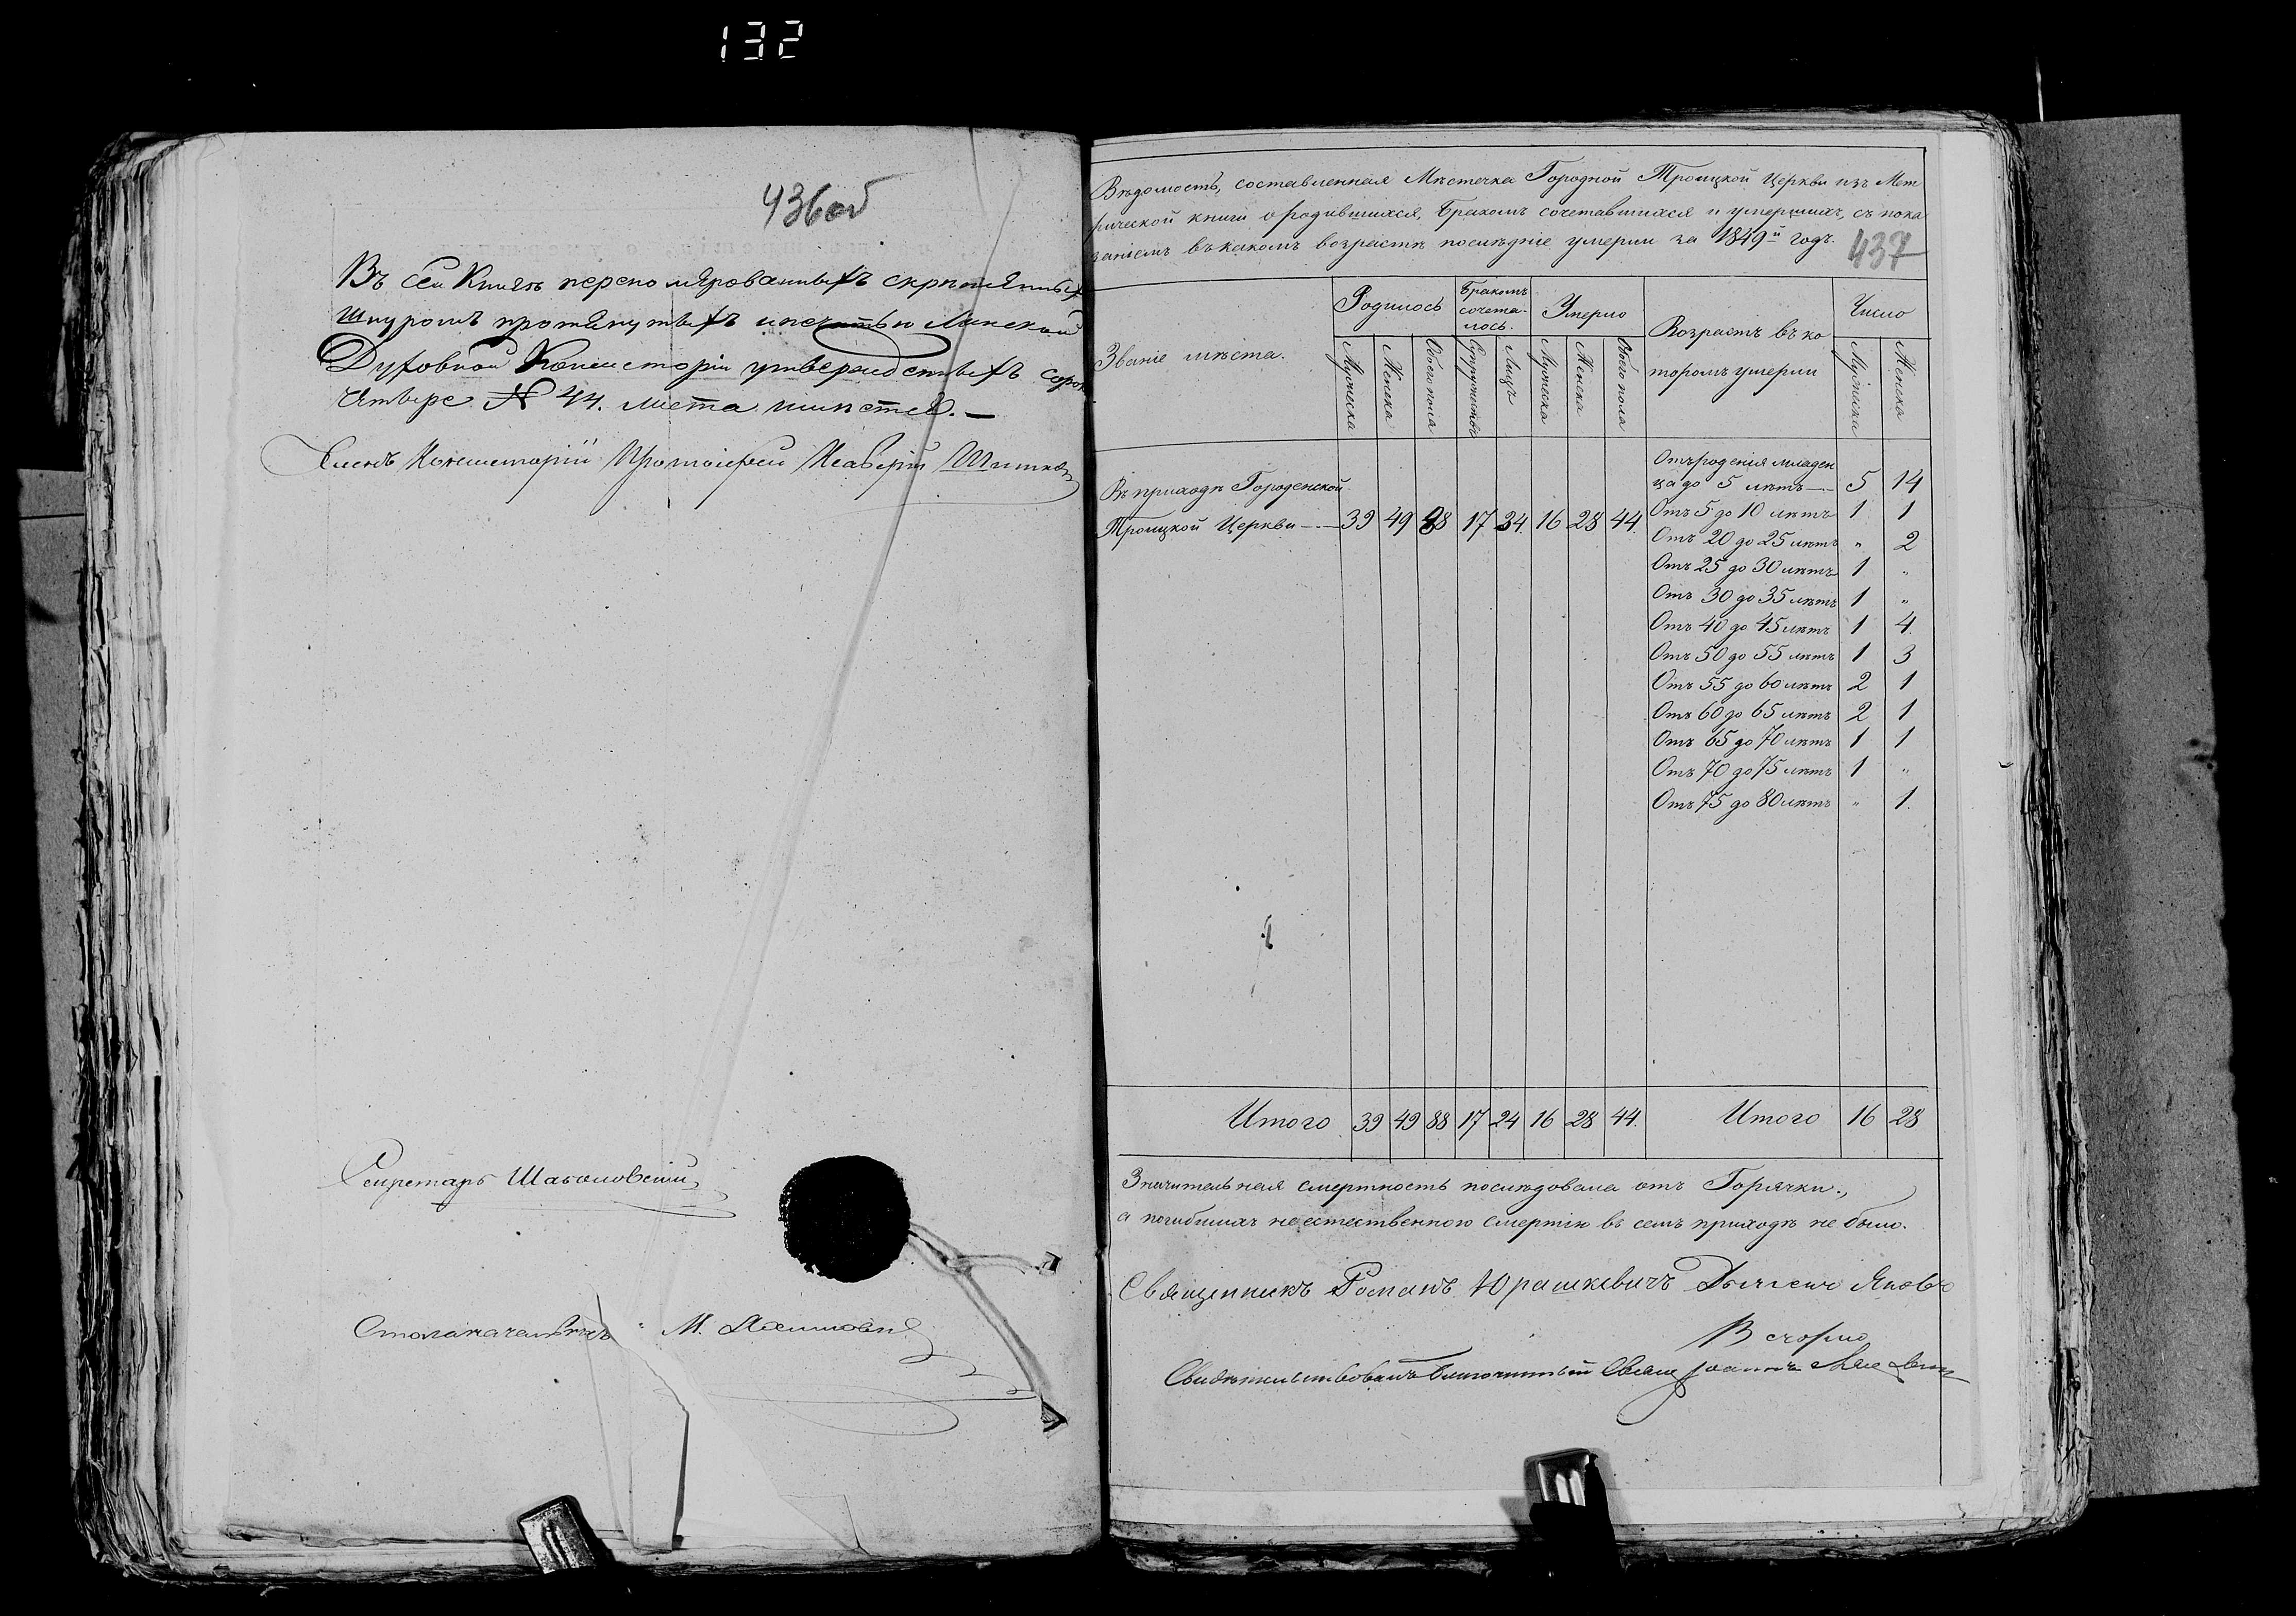 132
436об
Въ сей Книгѣ перенумярованныхъ скрѣпленныхъ
шнуромъ протянутыхъ и печатью Минской
Духовной Консисторіи утвержденныхъ сорок
четыре № 44. листа имѣется. —
Членъ Консисторіи Протоіерей
Секретарь
Столоначальникъ М.
Вѣдомость, составленная Мѣстечка Городной Троицкой Церкви изъ Мет
рической книги о родившихся, бракомъ сочетавшихся и умершихъ, съ пока
заніемъ въ какомъ возрастѣ послѣдніе умерли за 1849й годъ.
437
Званіе мѣста.
Родилось
Бракомъ
сочета-
лось.
Умерло
Возрастъ въ ко
торомъ умерли
Число
Мужеска
Женска
Обоего пола
Супружествъ
Лицъ
Мужеска
Женска
Обоего пола
Мужеска
Женска
Въ приходѣ Городенской
Троицкой Церкви — — 39 49 88 17 34. 16 28 44.
Отъ роденія младен
ца до 5 лѣтъ — 5 14
Отъ 5 до 10 лѣтъ 1 1
Отъ 20 до 25 лѣтъ " 2
Отъ 25 до 30 лѣтъ 1 "
Отъ 30 до 35 лѣтъ 1 "
Отъ 40 до 45 лѣтъ 1 4.
Отъ 50 до 55 лѣтъ 1 3
Отъ 55 до 60 лѣтъ 2 1
Отъ 60 до 65 лѣтъ 2 1
Отъ 65 до 70 лѣтъ 1 1
Отъ 70 до 75 лѣтъ 1 "
Отъ 75 до 80 лѣтъ " 1.
Итого 39 49 88 17 24 16 28 44. Итого 16 28
Значительная смертность послѣдовала отъ Горячки.,
а погибшихъ неестественною смертію въ семъ приходѣ не было.
Священникъ Романъ Юрашкевичъ
Свидѣтельствовалъ благочинный Свящ Іоаннъ